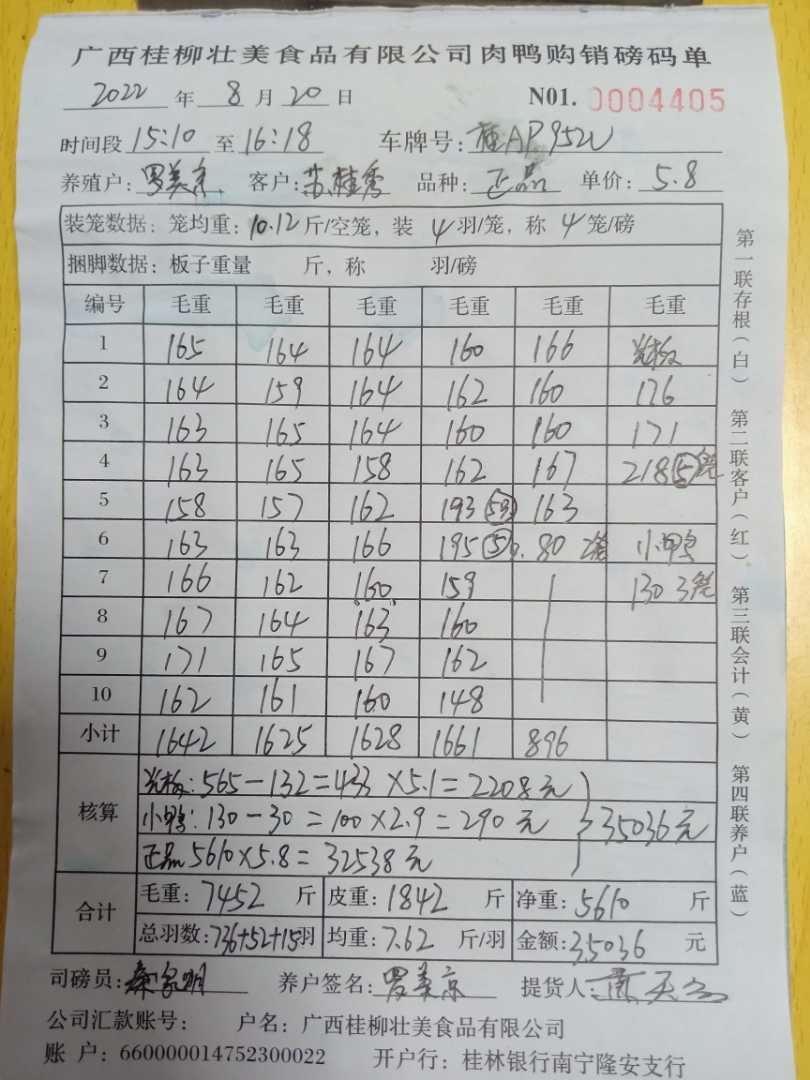 广西桂柳壮美食品有限公司肉鸭购销磅码单
2022 年 8 月 20 日 N01. 0004405
时间段 15:10 至 16:18 车牌号: 桂AP952U
养殖户: 罗美京 客户: 苏桂秀 品种: 正品 单价: 5.8
装笼数据: 笼均重: 10.12 斤/空笼, 装 4 羽/笼, 称 4 笼/磅
捆脚数据: 板子重量 斤, 称 羽/磅
编号 毛重 毛重 毛重 毛重 毛重 毛重
1 165 164 164 160 166 光板
2 164 159 164 162 160 176
3 163 165 164 160 160 171
4 163 165 158 162 167 218 5笼
5 158 157 162 193 163
6 163 163 166 195 5 80 2笼 小鸭
7 166 162 160 159 130 3笼
8 167 164 163 160
9 171 165 167 162
10 162 161 160 148
小计 1642 1625 1628 1661 896
核算
光板: 565-132=433×5.1=2208元
小鸭: 130-30=100×2.9=290元 35036元
正品 5610×5.8=32538元
合计
毛重: 7452 斤 皮重: 1842 斤 净重: 5610 斤
总羽数: 736+52+15羽 均重: 7.62 斤/羽 金额: 35036 元
司磅员: 养户签名: 罗美京 提货人:
公司汇款账号: 户名: 广西桂柳壮美食品有限公司
账 户: 660000014752300022 开户行: 桂林银行南宁隆安支行
第一联存根(白) 第二联客户(红) 第三联会计(黄) 第四联养户(蓝)